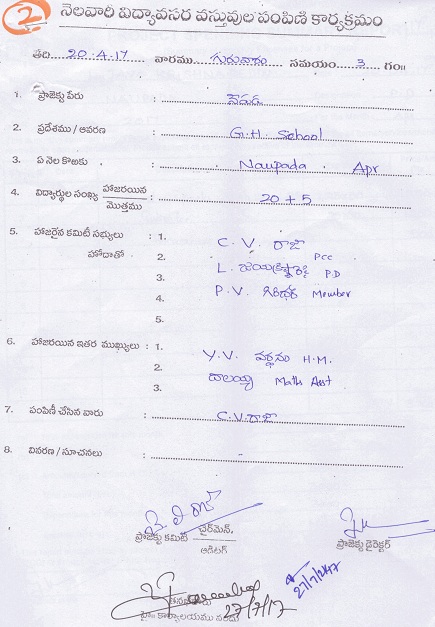 2
నెలవారి విద్యావసర వస్తువుల పంపిణి కార్యక్రమం
తేది 20-4-17 వారము గురువారం సమయం 3 గం॥
1. ప్రాజెక్టు పేరు :
2. ప్రదేశము / ఆవరణ : G.H. School
3. ఏ నెల కొఱకు : Naupada Apr
4. విద్యార్థుల సంఖ్య హాజరయిన / మొత్తము : 20 + 5
5. హాజరైన కమిటీ సభ్యులు : 1. C. V. రాజా
హోదాతో 2. PCC
3. L. P.D
4. P.V. గిరిధర Member
5.
6. హాజరయిన ఇతర ముఖ్యులు : 1. Y.V. వర్ధనం H.M.
2. Maths Asst
3.
7. పంపిణీ చేసిన వారు : C.V.రాజా
8. వివరణ / సూచనలు : -
ప్రాజెక్టు కమిటీ ఛైర్మెన్.
ఆడిటర్
ప్రాజెక్టు డైరెక్టర్
27/7/2017
27/7/17